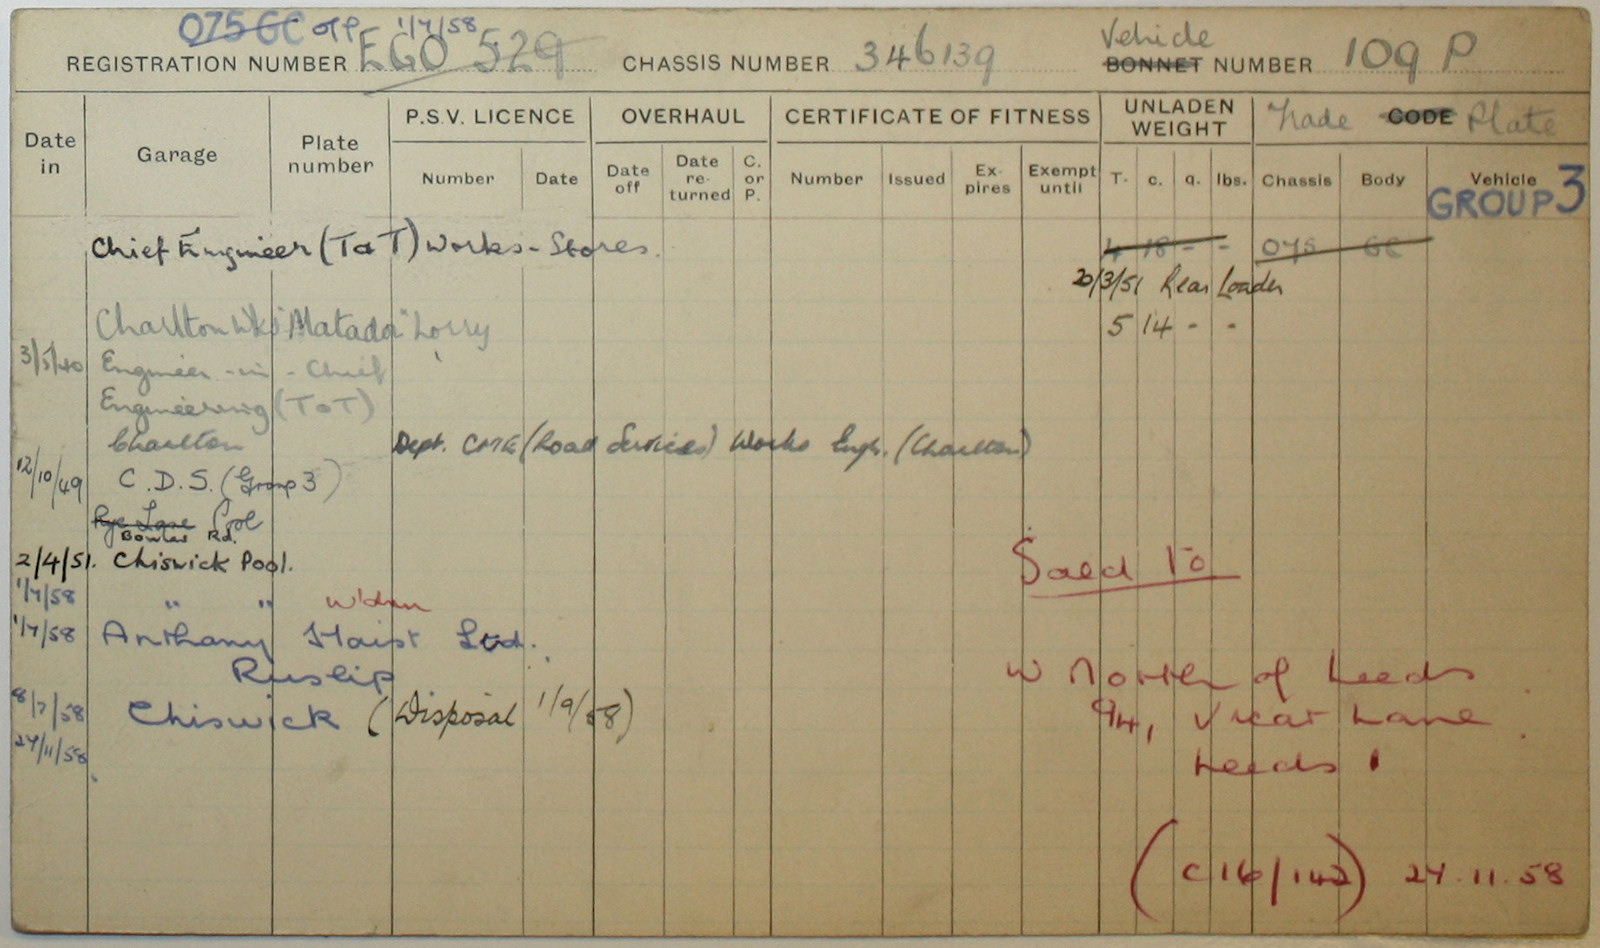 075 GC off 1/7/58
REGISTRATION NUMBER EGO 529 CHASSIS NUMBER 346139 Vehicle BONNET NUMBER 109 P
Date in Garage Plate number P.S.V. LICENCE OVERHAUL CERTIFICATE OF FITNESS UNLADEN WEIGHT Trade CODE Plate
Number Date Date off Date re-turned C. or P. Number Issued Ex-pires Exempt until T. c. q. lbs. Chassis Body Vehicle
GROUP 3
Chief Engineer (T o T) Works - Stores. 4 18 - - 075 GC
20/3/51 Rear Loader
Charlton Wks "Matador" Lorry 5 14 - -
3/5/40 Engineer - in - Chief
Engineering (T o T)
Charlton Dept. CME (Road Services) Works Engr. (Charlton)
12/10/49 C.D.S. (Group 3)
Rye Lane Pool
Bowles Rd.
2/4/51. Chiswick Pool. Saed To
1/7/58 " " W'dn
1/7/58 Anthony Hoist Ltd.
Ruslip W North of Leeds
8/7/58 Chiswick (Disposal 1/9/58) 94, Vicar Lane
27/11/58 Leeds 1
(C16/142) 27.11.58